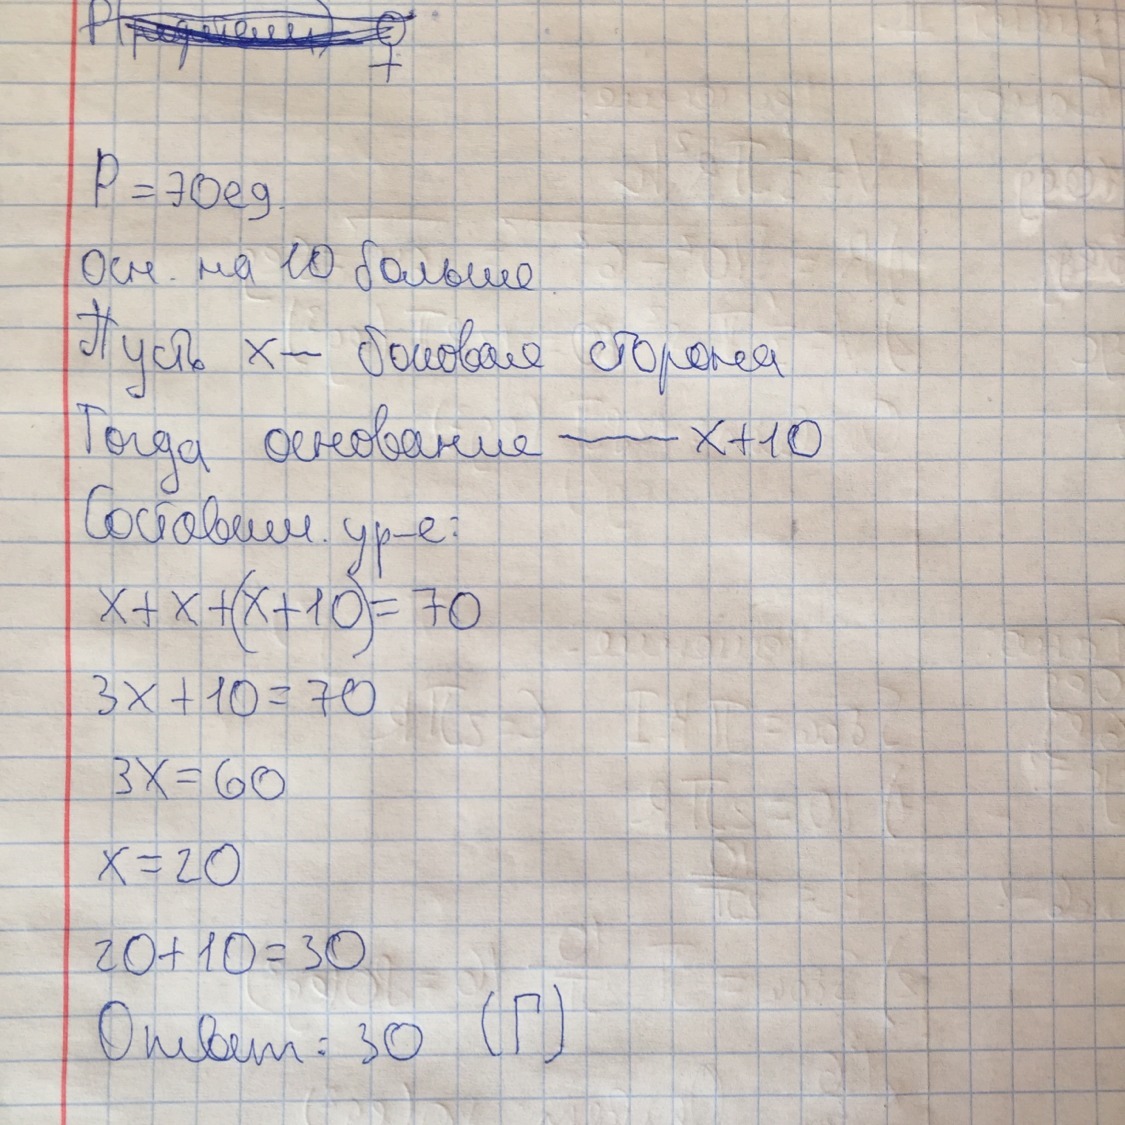 P = 70 ед.
осн. на 10 больше
Пусть x — боковая сторона
Тогда основание — x+10
Составим. ур-е:
x+x+(x+10)=70
3x+10=70
3x=60
x=20
20+10=30
Ответ: 30 (П)